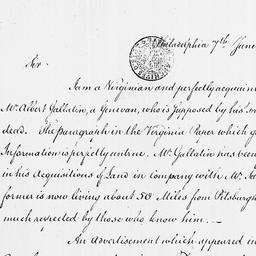 Philadelphia 7th June
Sir
I am a Virginian and perfectly acquain
Mr. Albert Gallatin, a Genevan, who is supposed by his
dead. The paragraph in the Virginia Paper which g
Information is perfectly untrue. Mr. Gallatin has been
in his Acquisitions of Land in Company with Mr.
former is now living about 50 Miles from Pitsburgh
much respected by those who know him. —
An Advertisement which appeared in